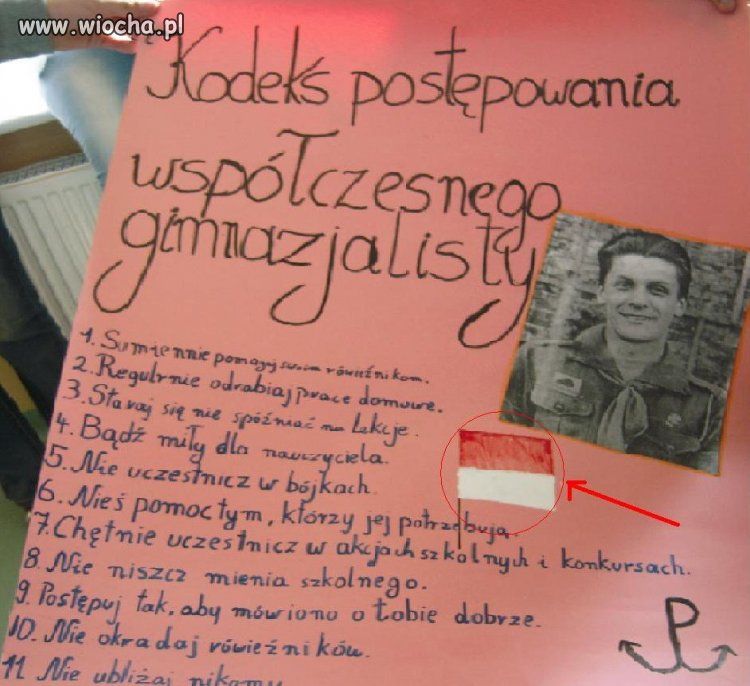 www.wiocha.pl
Kodeks postępowania
współczesnego
gimnazjalisty
1. Sumiennie pomagaj swoim rówieźnikom.
2. Regulrnie odrabiaj prace domowe.
3. Staraj się nie spóźniać na lekcje.
4. Bądź miły dla nauczyciela.
5. Nie uczestnicz w bójkach.
6. Nieś pomoc tym, którzy jej potrzebują.
7. Chętnie uczestnicz w akcjach szkolnych i konkursach.
8. Nie niszcz mienia szkolnego.
9. Postępuj tak, aby mówiono o tobie dobrze.
10. Nie okradaj rówieźników.
11 Nie ubliżaj nikomu
P